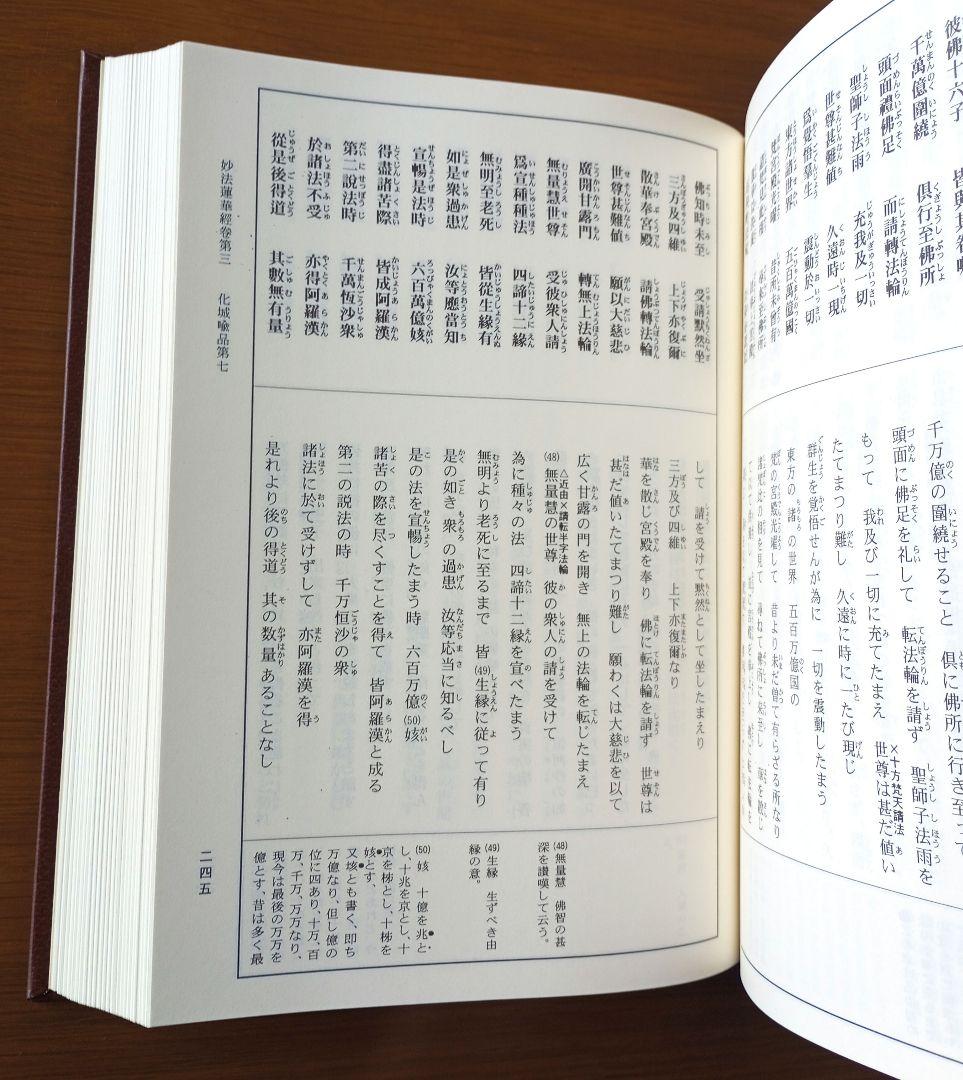 彼佛十六子
千萬億圍繞 俱行至佛所
頭面禮佛足 而請轉法輪
聖師子法雨 充我及一切
世尊甚難値 久遠時一現
爲覺悟羣生 震動於一切
東方諸世界 五百萬億國
千万億の圍繞せること 俱に佛所に行き
頭面に佛足を礼して 転法輪を請ず 聖師子法雨を
もって 我及び一切に充てたまえ ×十方梵天請法 世尊は甚だ値い
たてまつり難し 久遠時に一たび現じ
群生を覚悟せんが為に 一切を震動したまう
東方の諸の世界 五百万億国の
梵の宮殿光曜して 昔より未だ曽て有らざる所なり
佛知時未至 受請默然坐
三方及四維 上下亦復爾
散華奉宮殿 請佛轉法輪
世尊甚難値 願以大慈悲
廣開甘露門 轉無上法輪
無量慧世尊 受彼衆人請
爲宣種種法 四諦十二緣
無明至老死 皆從生緣有
如是衆過患 汝等應當知
宣暢是法時 六百萬億姟
得盡諸苦際 皆成阿羅漢
第二說法時 千萬恆沙衆
於諸法不受 亦得阿羅漢
從是後得道 其數無有量
して 請を受けて默然として坐したまえり
三方及び四維 上下亦復爾なり
華を散じ宮殿を奉り 佛に転法輪を請ず 世尊は
甚だ値いたてまつり難し 願わくは大慈悲を以て
広く甘露の門を開き 無上の法輪を転じたまえ
△近由×請転半字法輪
(48)無量慧の世尊 彼の衆人の請を受けて
為に種々の法 四諦十二縁を宣べたまう
無明より老死に至るまで 皆(49)生縁に従って有り
是の如き衆の過患 汝等応当に知るべし
是の法を宣暢したまう時 六百万億(50)姟
諸苦の際を尽くすことを得て 皆阿羅漢と成る
第二の説法の時 千万恒沙の衆
諸法に於て受けずして 亦阿羅漢を得
是れより後の得道 其の数量あることなし
(48)無量慧 佛智の甚
深を讃嘆して云う。
(49)生縁 生ずべき由
縁の意。
(50)姟 十億を兆と
し、十兆を京とし、十
京を秭とし、十秭を
姟とす、
又垓とも書く、即ち
万億なり、但し億の
位に四あり、十万、百
万、千万、万万なり、
現今は最後の万万を
億とす、昔は多く最
妙法蓮華經卷第三 化城喩品第七
二四五